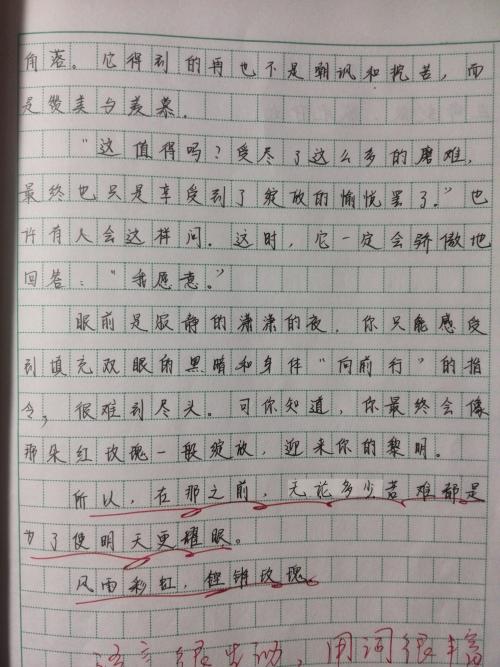 角落。它得到的再也不是朝讽和挖苦，而
是赞美与羡慕。
“这值得吗？受尽了这么多的磨难，
最终也只是享受到了绽放的愉悦罢了。”也
许有人会这样问。这时，它一定会骄傲地
回答：“我愿意。”
眼前是寂静的潇潇的夜，你只能感受
到填充双眼的黑暗和身体“向前行”的指
令，很难到尽头。可你知道，你最终会像
那朵红玫瑰一般绽放，迎来你的黎明。
所以，在那之前，无论多少苦难都是
为了使明天更耀眼。
风雨彩虹，铿锵玫瑰。
语言很生动，用词很丰富